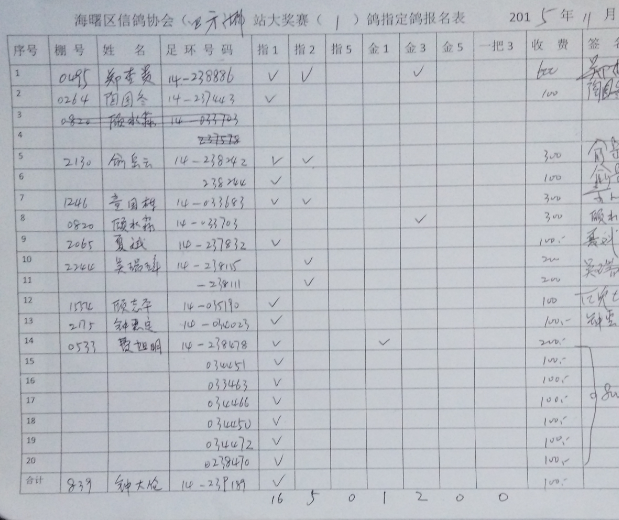 海曙区信鸽协会( 站大奖赛( 1 )鸽指定鸽报名表 2015年11月
序号 棚号 姓名 足环号码 指1 指2 指5 金1 金3 金5 一把3 收费 签名
1 0495 郑 14-238886 ✓ ✓ ✓ 600
2 0264 陶国冬 14-237443 ✓ 100 陶国
3 0820 顾水森 14-033703
4 237578
5 2130 俞岳云 14-238242 ✓ ✓ 300 俞
6 238244 ✓ 100 俞
7 1246 童国 14-033683 ✓ ✓ 300
8 0820 顾水森 14-033703 ✓ 300 顾水
9 2065 夏斌 14-237832 ✓ 100.- 夏斌
10 2244 吴瑞 14-238115 ✓ 200 吴瑞
11 -238111 ✓ 200
12 1534 顾志平 14-035190 ✓ 100
13 2175 钟惠定 14-034023 ✓ 100.- 钟惠
14 0533 旭明 14-238478 ✓ ✓ 200.-
15 034451 ✓ 100.-
16 033463 ✓ 100.-
17 034466 ✓ 100.-
18 034450 ✓ 100.-
19 034472 ✓ 100.-
20 0238470 ✓ 100.-
合计 839 钟大 14-239189 ✓ 100.-
16 5 0 1 2 0 0